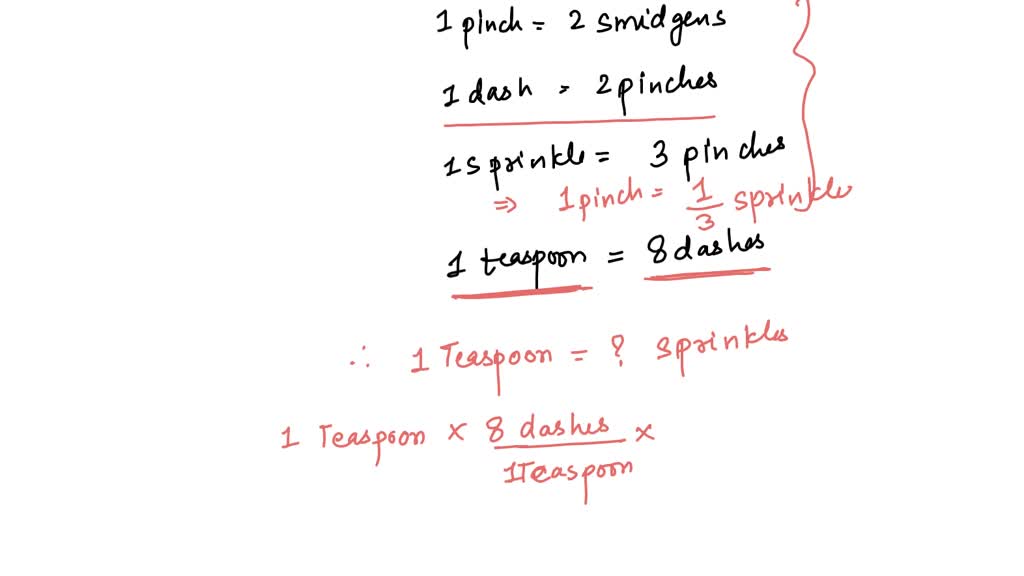 1 pinch = 2 smidgens
1 dash = 2 pinches
1 sprinkle = 3 pinches
⇒ 1 pinch = 1/3 sprinkle
1 teaspoon = 8 dashes
∴ 1 Teaspoon = ? sprinkles
1 Teaspoon × 8 dashes / 1 Teaspoon ×